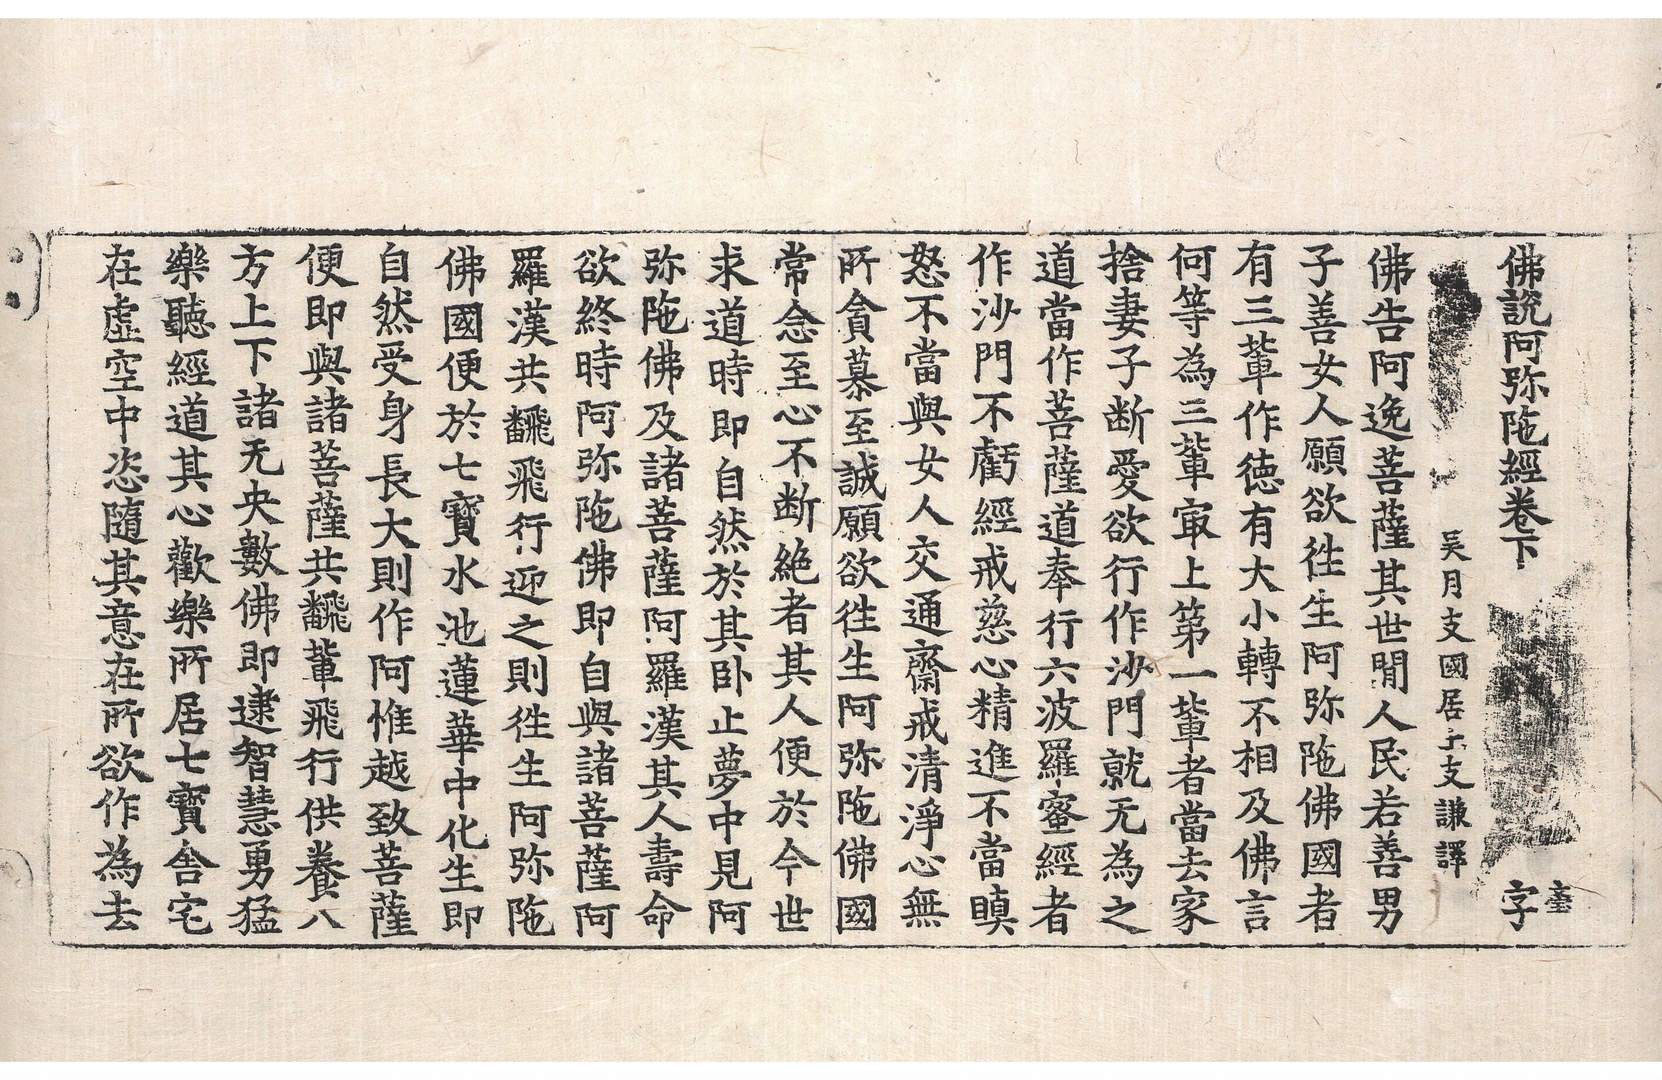 佛說阿弥陁經卷下
字
壹
吳月支國居士支謙譯
佛告阿逸菩薩其世閒人民若善男
子善女人願欲徃生阿弥陁佛國者
有三軰作徳有大小轉不相及佛言
何等為三軰㝡上第一軰者當去家
捨妻子断愛欲行作沙門就无為之
道當作菩薩道奉行六波羅蜜經者
作沙門不虧經戒慈心精進不當瞋
怒不當與女人交通齋戒清淨心無
所貪慕至誠願欲徃生阿弥陁佛國
常念至心不断絶者其人便於今世
求道時即自然於其卧止夢中見阿
弥陁佛及諸菩薩阿羅漢其人壽命
欲終時阿弥陁佛即自與諸菩薩阿
羅漢共飜飛行迎之則徃生阿弥陁
佛國便於七寶水池蓮華中化生即
自然受身長大則作阿惟越致菩薩
便即與諸菩薩共飜軰飛行供養八
方上下諸无央數佛即逮智慧勇猛
樂聽經道其心歡樂所居七寶舍宅
在虛空中恣隨其意在所欲作為去